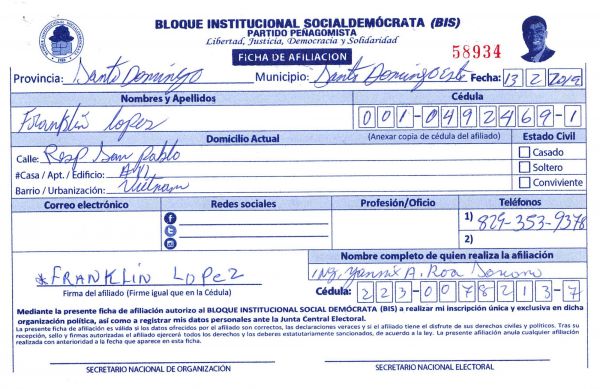 BLOQUE INSTITUCIONAL SOCIALDEMÓCRATA (BIS)
PARTIDO PEÑAGOMISTA
Libertad, Justicia, Democracia y Solidaridad
FICHA DE AFILIACION
58934
Provincia: Santo Domingo Municipio: Santo Domingo Este Fecha: 13 2 2019
Nombres y Apellidos Cédula
Franklin Lopez 001-0492469-1
Domicilio Actual (Anexar copia de cédula del afiliado) Estado Civil
Calle: Resp San Pablo Casado
#Casa / Apt. / Edificio: Soltero
Barrio / Urbanización: Vietnam Conviviente
Correo electrónico Redes sociales Profesión/Oficio Teléfonos
1) 829-353-9378
2)
Nombre completo de quien realiza la afiliación
*FRANKLIN LOPEZ Ing. A. Roa
Firma del afiliado (Firme igual que en la Cédula) Cédula: 223-0078213-7
Mediante la presente ficha de afiliación autorizo al BLOQUE INSTITUCIONAL SOCIAL DEMÓCRATA (BIS) a realizar mi inscripción única y exclusiva en dicha
organización política, así como a registrar mis datos personales ante la Junta Central Electoral.
La presente ficha de afiliación es válida si los datos ofrecidos por el afiliado son correctos, las declaraciones veraces y si el afiliado tiene el disfrute de sus derechos civiles y políticos. Tras su
recepción, sello y firmas autorizadas el afiliado ejercerá todos los derechos y los deberes estatutariamente sancionados, de acuerdo a la ley. La presente afiliación anula cualquier afiliación
realizada con anterioridad a la fecha que aparece en esta ficha.
SECRETARIO NACIONAL DE ORGANIZACIÓN SECRETARIO NACIONAL ELECTORAL